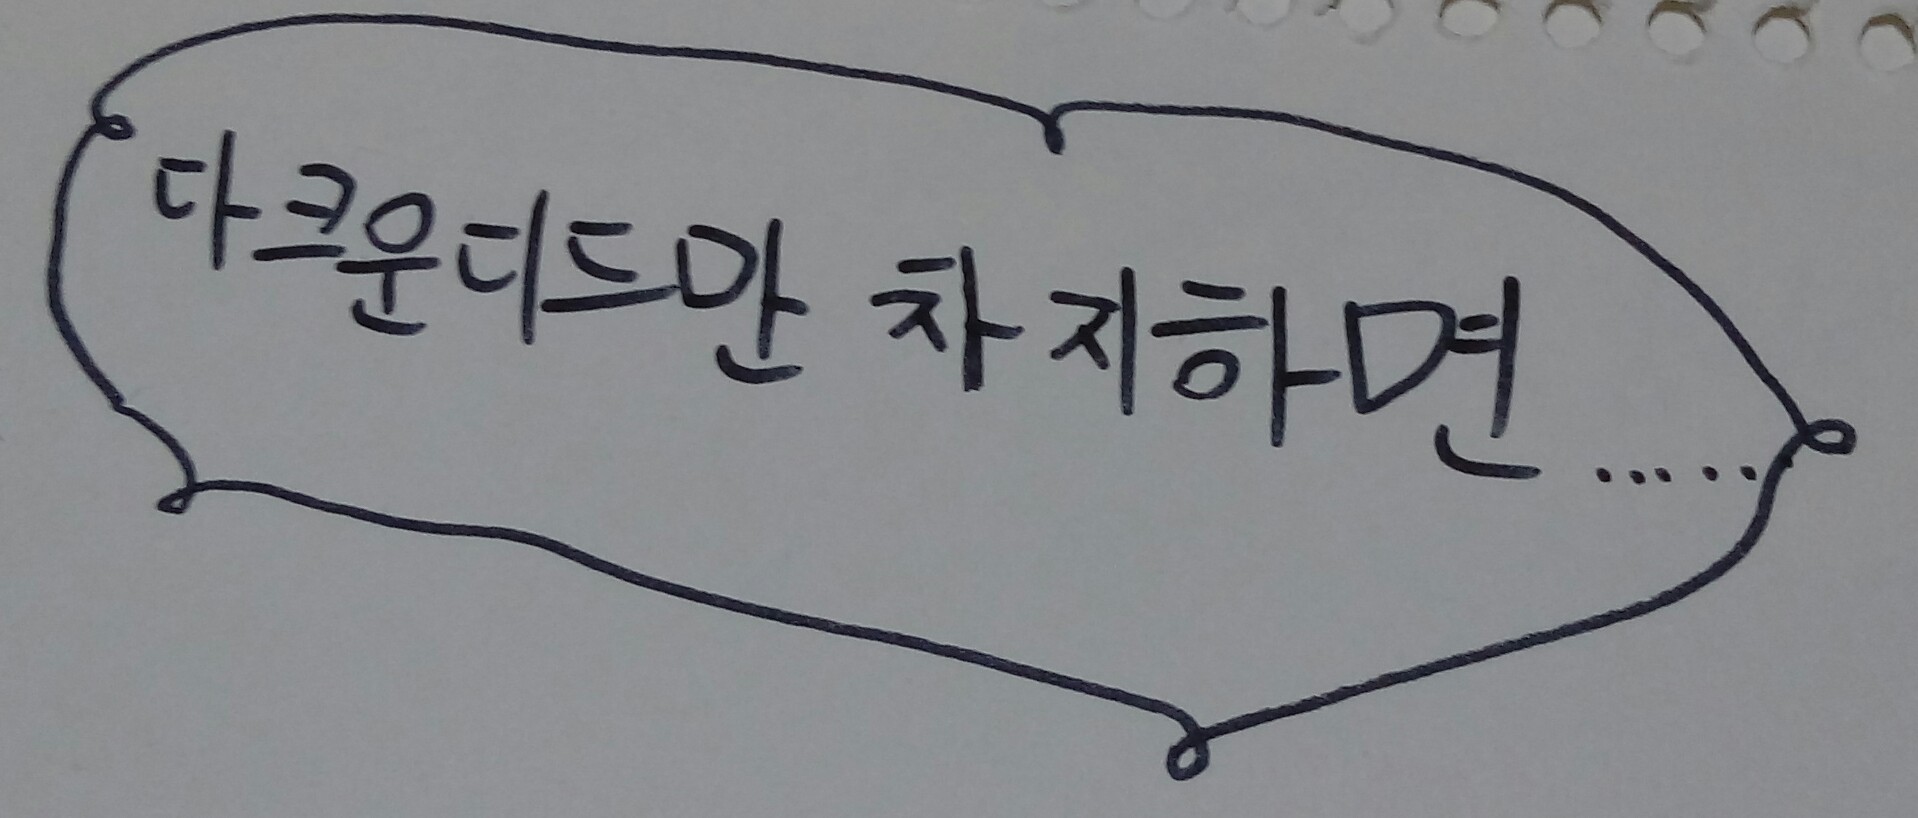 다크운디드만 차지하면......